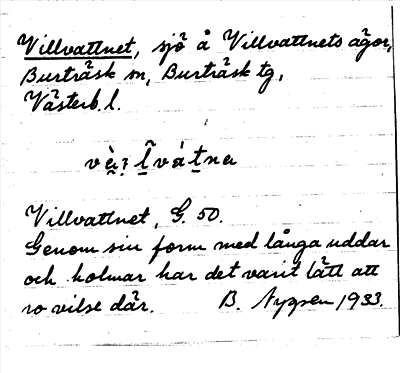 Villvattnet, sjö å Villvattnets ägor,
Burträsk sn, Burträsk tg,
Västerb. l.
Villvattnet, G. 50.
Genom sin form med långa uddar
och holmar har det varit lätt att
ro vilse där. B. Nygren 1933.